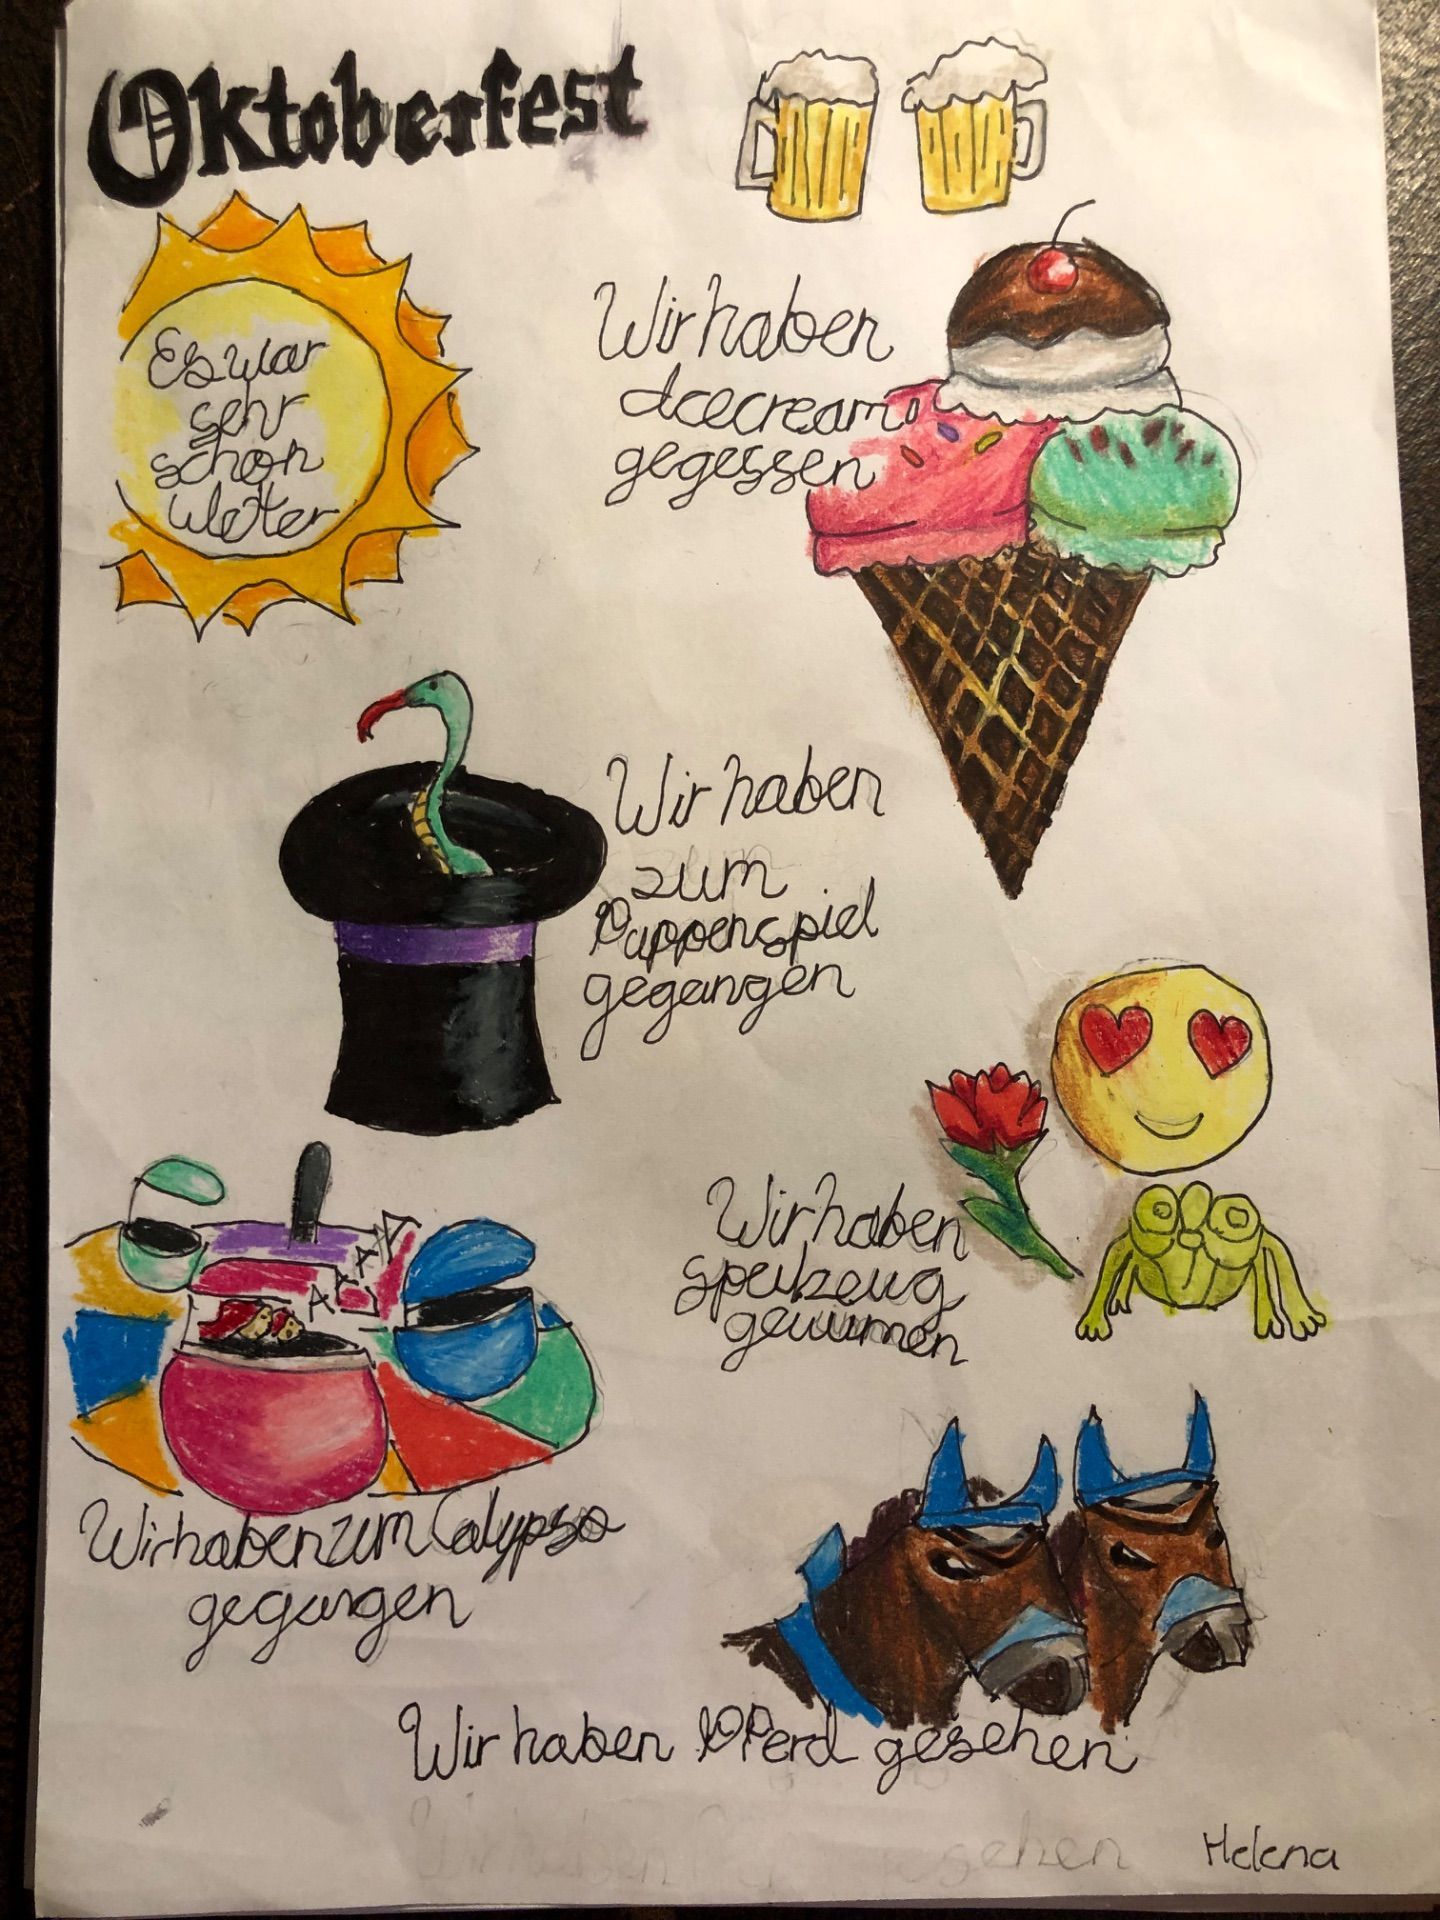 Oktoberfest
Es war
sehr
schon
Wetter
Wir haben
Icecream
gegessen
Wir haben
zum
Puppenspiel
gegangen
AAAA
Wir haben
gewunnen
Wir haben zum Calypso
gegangen
Wir haben Pferd gesehen
gesehen
Helena